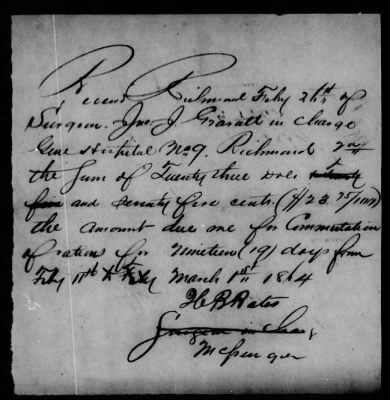 Recevd Richmond Feby 26th of
Surgeon Jno. J. Gravatt in charge
Genl Hospital No 9. Richmond Va
the Sum of Twenty three Dols
five and seventy five cents ($23 75/100)
the amount due me for Commutation
of rations for Nineteen (19) days from
Feby 11th to March 1st 1864
H B Bates
Surgeon in Charg
Messenger